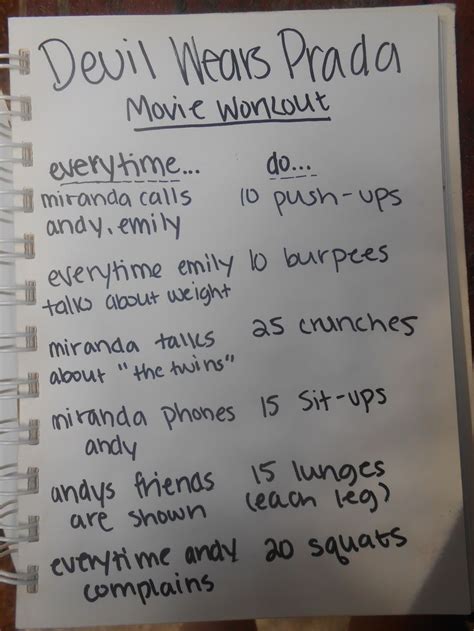 Devil Wears Prada
Movie Workout
everytime... do...
miranda calls 10 push-ups
andy, emily
everytime emily 10 burpees
talks about weight
miranda talks 25 crunches
about "the twins"
miranda phones 15 sit-ups
andy
andys friends 15 lunges
are shown (each leg)
everytime andy 20 squats
complains